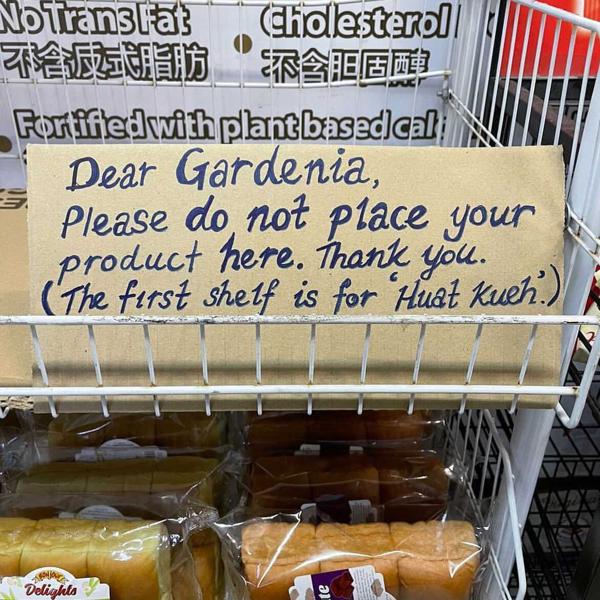 No Trans Fat
Cholesterol
不含反式脂肪
不含胆固醇
Fortified with plant based cal
Dear Gardenia,
Please do not place your
product here. Thank you.
(The first shelf is for 'Huat Kueh'.)
Delights